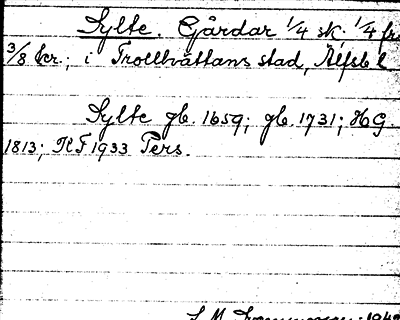 Sylte. Gårdar 1/4 sk. 1/4 fr
3/8 kr., i Trollhättans stad, Älfsb l
Sylte jb. 1659; jb. 1731; HG.
1813; RF 1933 Pers.
1942